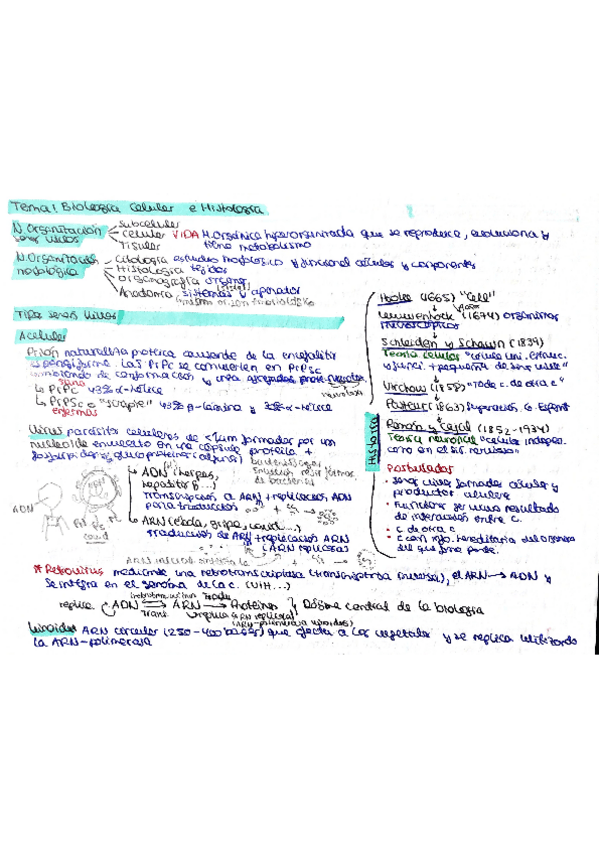 Tema 1 Biología Celular e Histología
N. Organización seres vivos
Subcelular
Celular VIDA M. orgánica hiperorganizada que se reproduce, evoluciona y tiene metabolismo
Tisular
N. Organización morfológica
Citología estudio morfológico y funcional células y componentes
Histología tejidos
Organografía órganos
Anatomía sistemas y aparatos
Tipos seres vivos
Acelular
Prion naturaleza proteica causante de la encefalitis
espongiforme. Las PrPc se convierten en PrPSc
cambiando de conformación y crea agregados
sana
↳ PrPc 43% α-hélice
↳ PrPSc o "scrapie" 43% β-lámina y α-hélice
enfermas
Virus parásitos celulares de <1um formados por un
nucleoide envuelto en una cápsula proteica +
ADN
↳ ADN (herpes,
hepatitis B...)
Transcripción a ARN + replicación ADN
para traducción
↳ ARN (ébola, gripe, covid...)
traducción de ARN + replicación ARN
(ARN replicasa)
covid
* Retrovirus mediante una retrotranscriptasa (transcriptasa inversa), el ARN → ADN y
se integra en el genoma de la c. (VIH...)
replica ADN ⇄ ARN → Proteínas } Dogma central de la biología
Viroides ARN circular (250-400 bases) que afecta a los vegetales y se replica utilizando
la ARN-polimerasa
Historia
Hooke (1665) "Cell"
Leeuwenhock (1674) organismos
microscópicos
Schleiden y Schwann (1839)
Teoría celular "célula uni. estruc.
y funci. + pequeña de seres vivos"
Virchow (1858) "Toda c. de otra c"
Pasteur (1863) superación G. Espont
Ramón y Cajal (1852-1934)
Teoría neuronal "células indepen.
como en el sis. nervioso"
Postulados
· Seres vivos formados células y
productos celulares
· Funciones ser vivo resultado
de interacciones entre c.
· c. de otra c.
· c con info. hereditaria del organismo
del que forma parte.